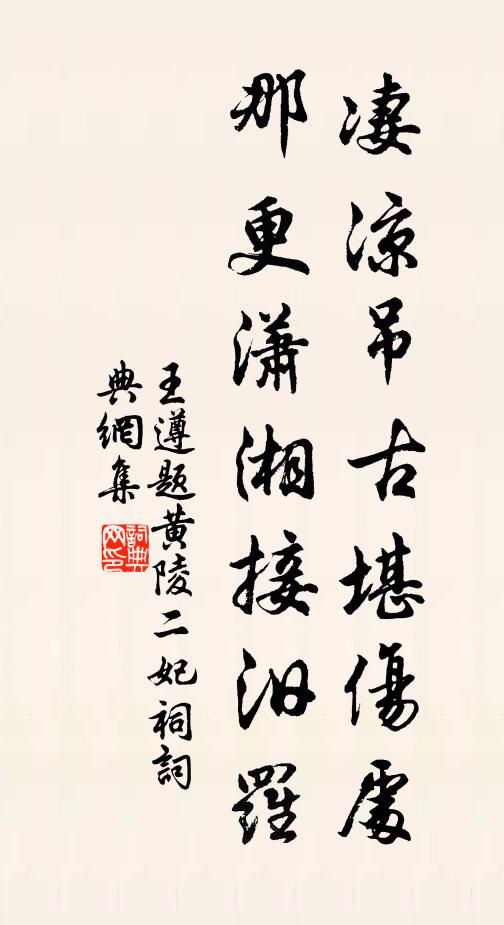 凄涼吊古堪傷處
那更瀟湘接汨羅
王遵題黄陵二妃祠詞
典網集
詞典
网印